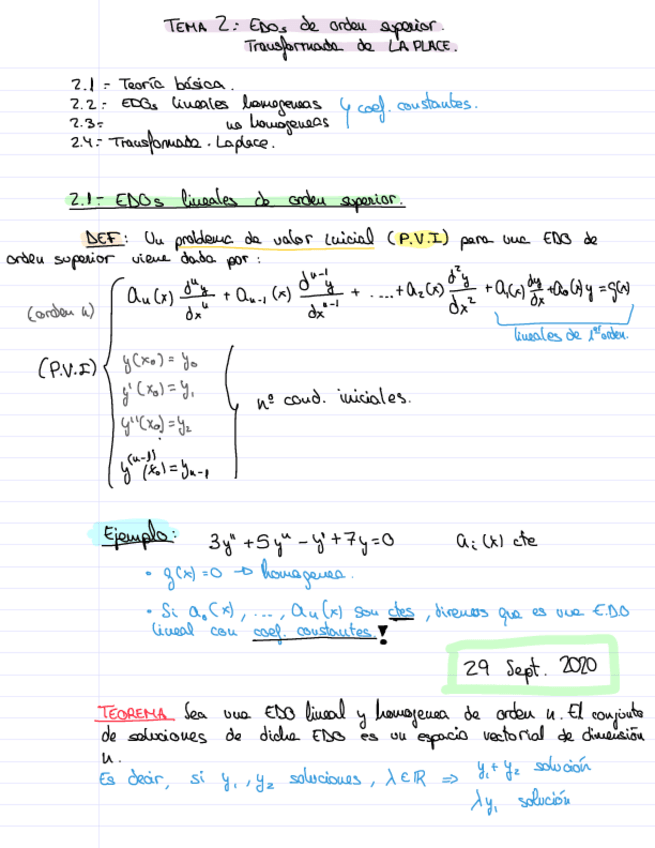 TEMA 2: EDOs de orden superior.
Transformada de LAPLACE.
2.1 - Teoría básica.
2.2 - EDOs lineales homogeneas y coef. constantes.
2.3 - no homogeneas
2.4 - Transformada. Laplace.
2.1- EDOs lineales de orden superior.
DEF: Un problema de valor inicial (P.V.I) para una EDO de
orden superior viene dada por:
(orden n) aₙ(x) dⁿy/dxⁿ + aₙ₋₁(x) dⁿ⁻¹y/dxⁿ⁻¹ + .... + a₂(x) d²y/dx² + a₁(x) dy/dx + a₀(x) y = g(x)
lineales de 1er orden.
(P.V.I) y(x₀) = y₀
y'(x₀) = y₁
y''(x₀) = y₂
y⁽ⁿ⁻¹⁾(x₀) = yₙ₋₁
nº cond. iniciales.
Ejemplo: 3y''' + 5y'' - y' + 7y = 0 aᵢ(x) cte
• g(x) = 0 → homogenea.
• Si a₀(x), ..., aₙ(x) son ctes, diremos que es una EDO
lineal con coef. constantes!
29 Sept. 2020
TEOREMA Sea una EDO lineal y homogenea de orden n. El conjunto
de soluciones de dicha EDO es un espacio vectorial de dimensión
n.
Es decir, si y₁, y₂ soluciones, λ∈ℝ ⇒ y₁+y₂ solución
λy₁ solución